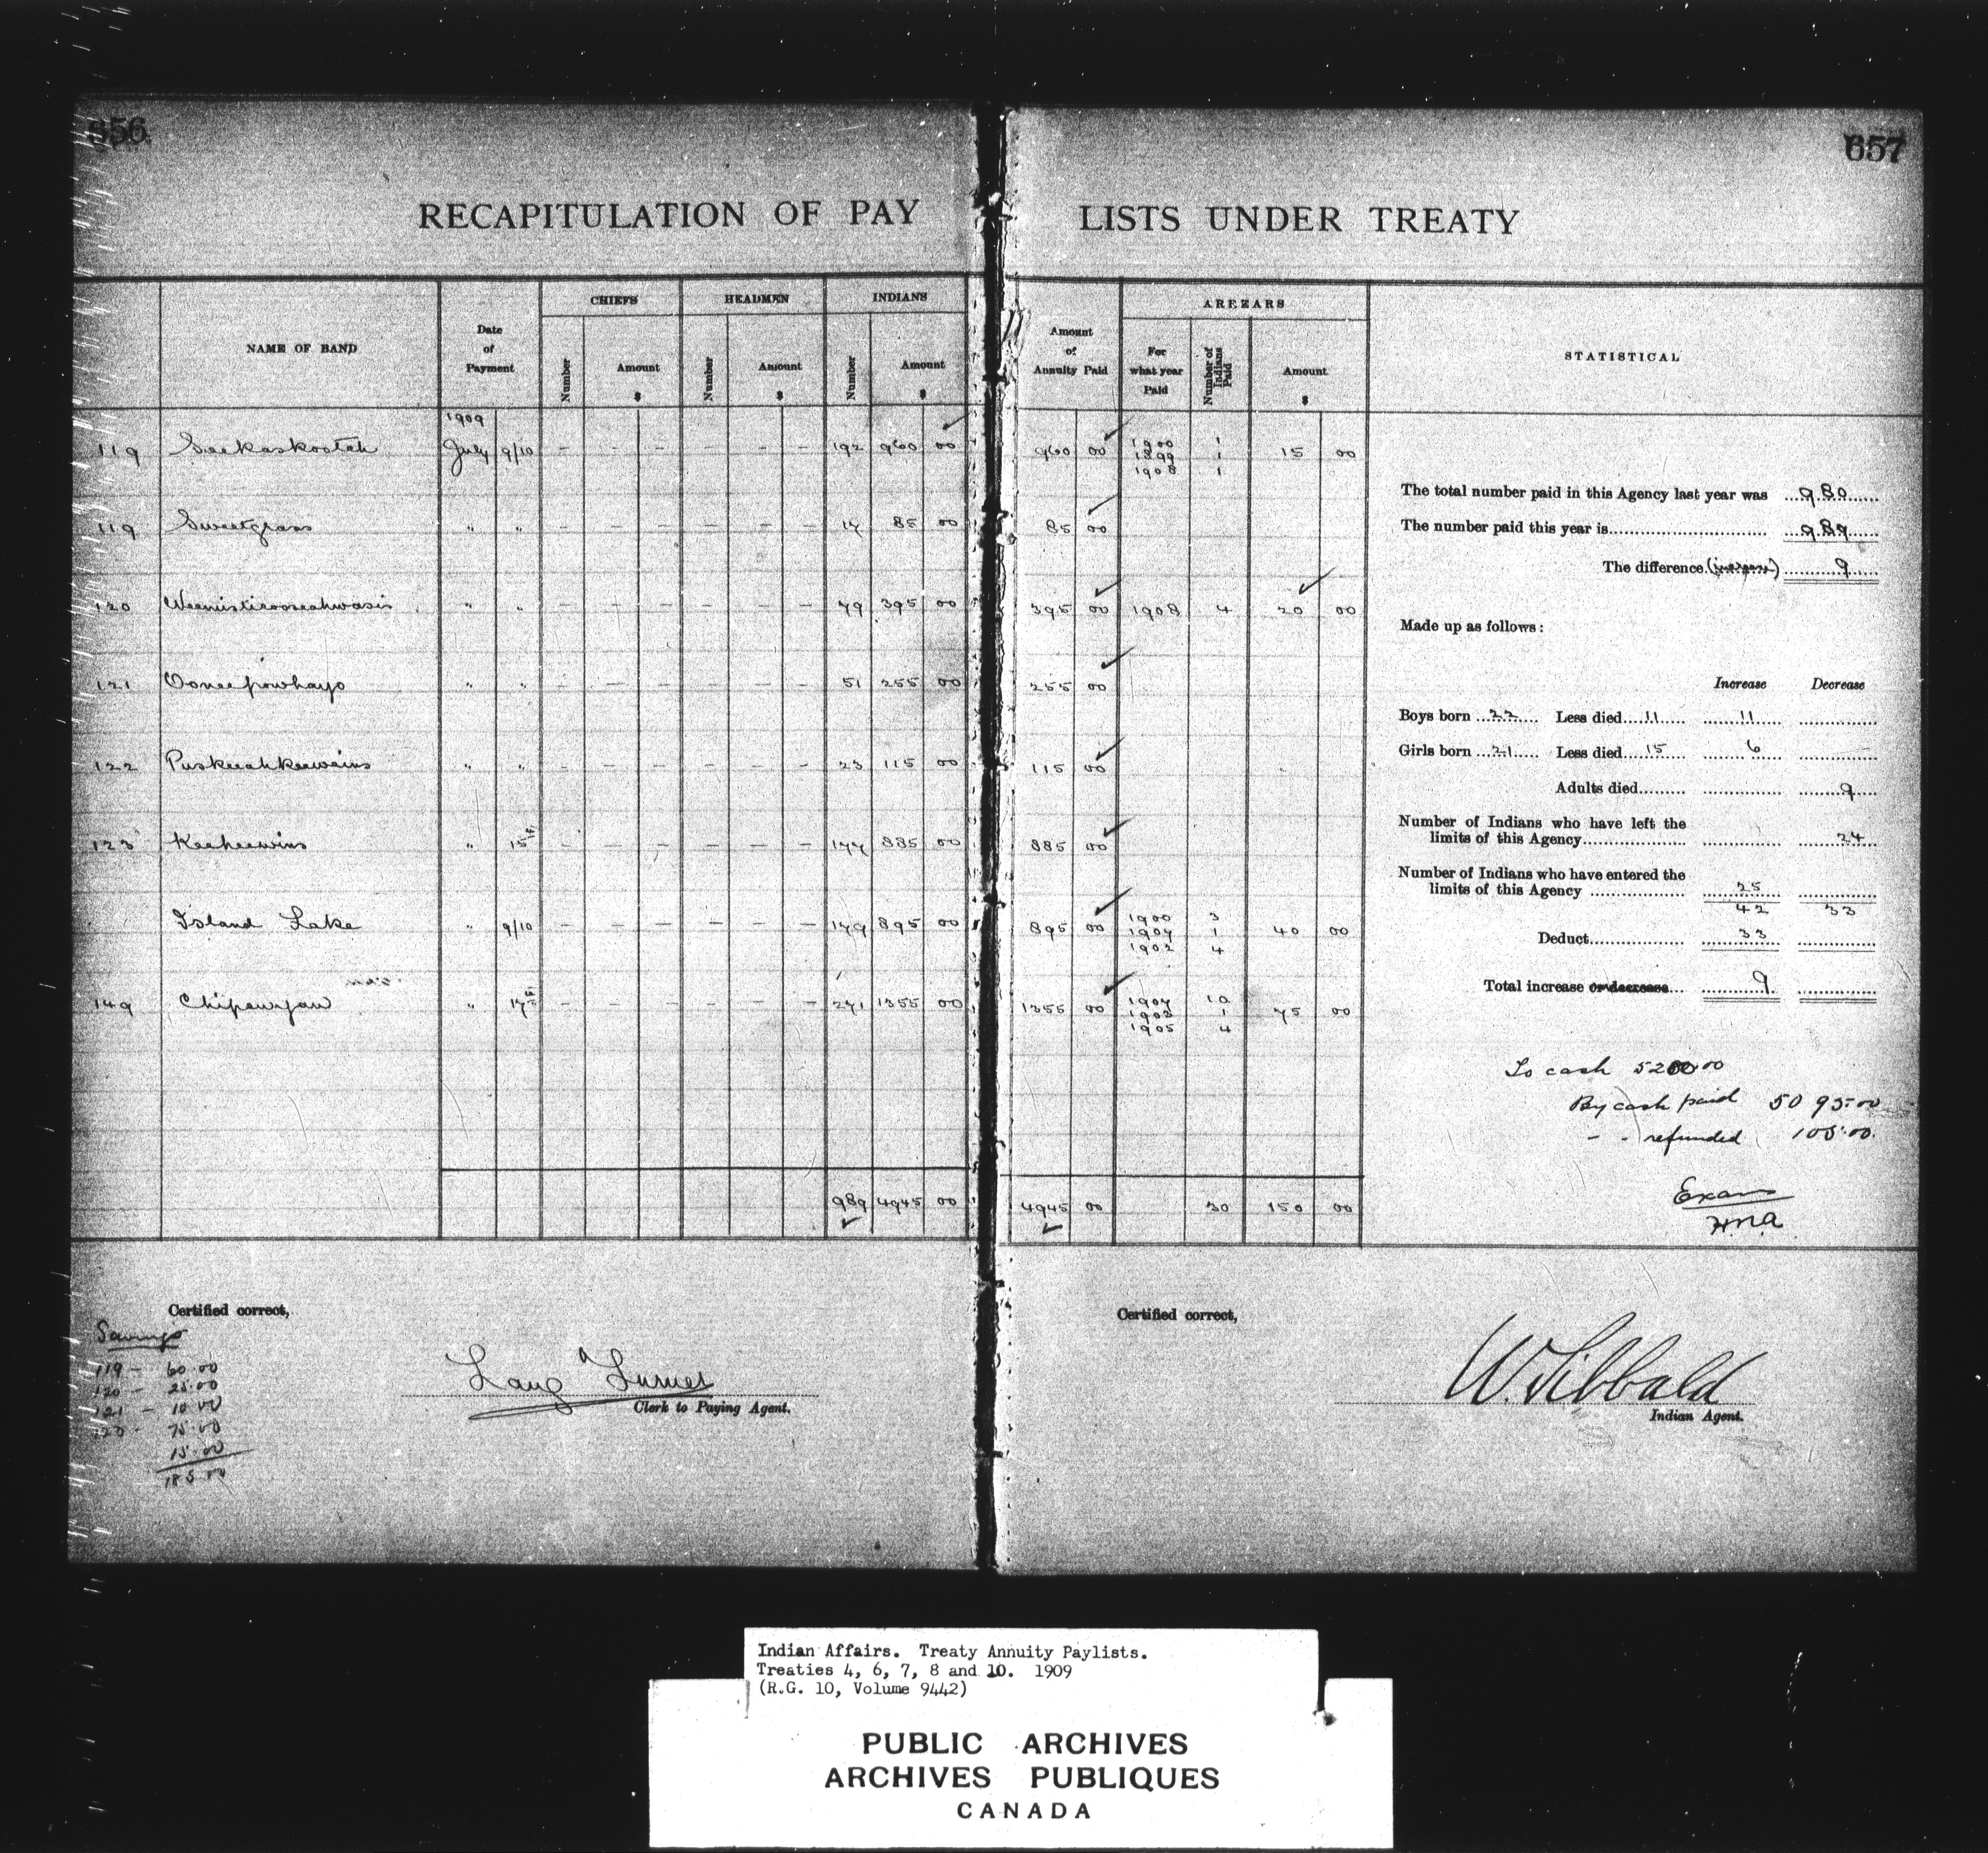 656
657
RECAPITULATION OF PAY LISTS UNDER TREATY
NAME OF BAND
Date of Payment
CHIEFS
Number
Amount $
HEADMEN
Number
Amount $
INDIANS
Number
Amount $
Amount of Annuity Paid
ARREARS
For what year Paid
Number of Indians Paid
Amount $
STATISTICAL
1909
119 Seekaskootch July 9/10 – – – – – – 192 960 00 960 00 1900 1 15 00
1899 1
1908 1
119 Sweetgrass " " – – – – – – 17 85 00 85 00
120 Weemisticooseahwasis " " – – – – – – 79 395 00 395 00 1908 4 20 00
121 Ooneepowhayo " " – – – – – – 51 255 00 255 00
122 Puskeeahkeewins " " – – – – – – 23 115 00 115 00
123 Keeheewins " 15 – – – – – – 177 885 00 885 00
Island Lake " 9/10 – – – – – – 179 895 00 895 00 1900 3 40 00
1907 1
1902 4
149 Chipewyan " 17 – – – – – – 271 1355 00 1355 00 1907 10 75 00
1902 1
1905 4
989 4945 00 4945 00 30 150 00
The total number paid in this Agency last year was 980
The number paid this year is 989
The difference (increase) 9
Made up as follows:
Increase Decrease
Boys born 22 Less died 11 11
Girls born 21 Less died 15 6
Adults died 9
Number of Indians who have left the
limits of this Agency 24
Number of Indians who have entered the
limits of this Agency 25
42 33
Deduct 33
Total increase or decrease 9
To cash 5200.00
By cash paid 5095.00
– – refunded 105.00
Exam
Certified correct,
Savings
119 – 60.00
120 – 25.00
121 – 10 00
123 – 75.00
15.00
185.00
Lang Turner
Clerk to Paying Agent.
Certified correct,
W. Sibbald
Indian Agent.
Indian Affairs. Treaty Annuity Paylists.
Treaties 4, 6, 7, 8 and 10. 1909
(R.G. 10, Volume 9442)
PUBLIC ARCHIVES
ARCHIVES PUBLIQUES
CANADA